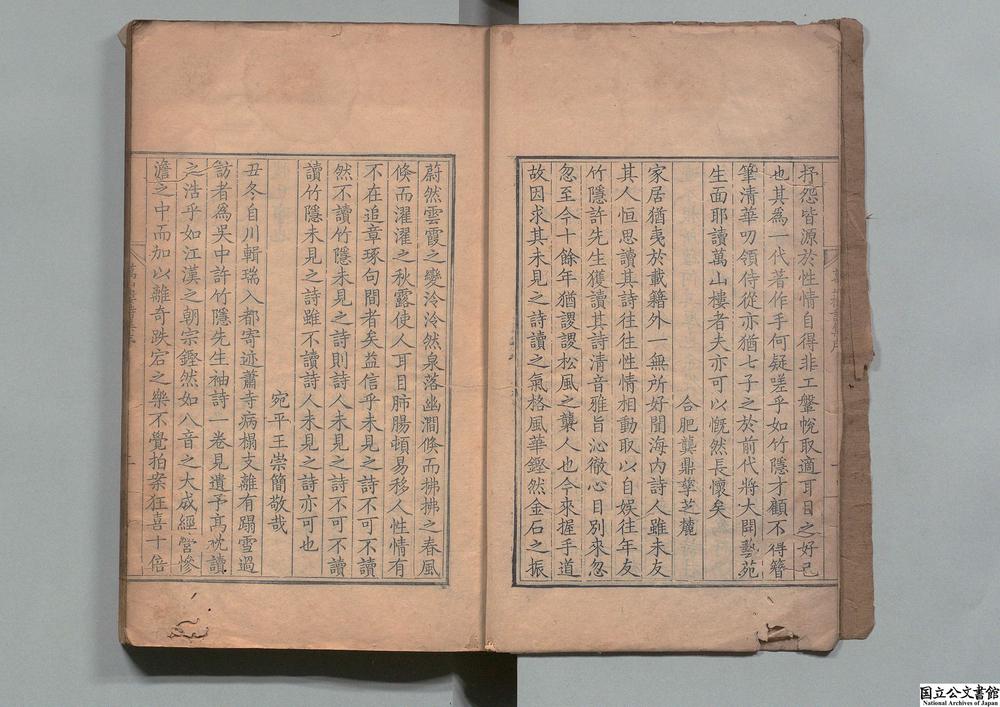 抒怨皆源於性情自得非工鞶帨取適耳目之好已
也其為一代著作手何疑嗟乎如竹隱才顧不得簪
筆清華叨領侍從亦猶七子之於前代將大闢藝苑
生面耶讀萬山樓者夫亦可以慨然長懷矣
合肥龔鼎孳芝麓
家居猶夷於載籍外一無所好聞海內詩人雖未友
其人恒思讀其詩往往性情相動取以自娛往年友
竹隱許先生獲讀其詩清音雅旨沁徹心目別來忽
忽至今十餘年猶謖謖松風之襲人也今來握手道
故因求其未見之詩讀之氣格風華鏗然金石之振
蔚然雲霞之變泠泠然泉落幽澗倏而拂拂之春風
倏而濯濯之秋露使人耳目肺腸頓易移人性情有
不在追章琢句間者矣益信乎未見之詩不可不讀
然不讀竹隱未見之詩則詩人未見之詩不可不讀
讀竹隱未見之詩雖不讀詩人未見之詩亦可也
宛平王崇簡敬哉
丑冬自川輯瑞入都寄迹蕭寺病榻支離有蹋雪過
訪者為吳中許竹隱先生袖詩一卷見遺予高枕讀
之浩乎如江漢之朝宗鏗然如八音之大成經營慘
澹之中而加以離奇跌宕之樂不覺拍案狂喜十倍
国立公文書館
National Archives of Japan